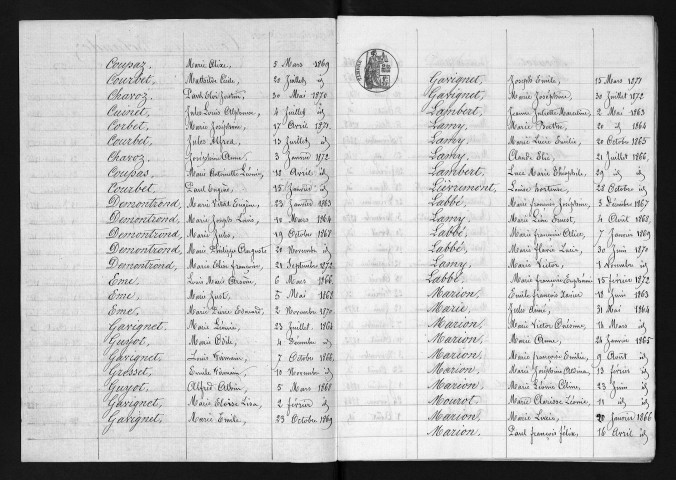 Coupaz, Marie Elise, 5 Mars 1869
Courbet, Mathilde Julie, 20 Juillet id
Chavoz, Paul Eloi Justin, 30 Mai 1870
Cuinet, Jules Louis Alphonse, 4 Juillet id
Corbet, Marie Joséphine, 17 Avril 1871
Courbet, Jules Alfred, 13 Juillet id
Chavoz, Joséphine Anna, 3 Janvier 1872
Coupas, Marie Antoinette Léonie, 18 Avril id
Courbet, Paul Eugène, 15 Janvier id
Demontrond, Marie Eugène, 23 Janvier 1863
Demontrond, Marie Joseph Louis, 10 Mars 1864
Demontrond, Marie Jules, 19 Octobre 1868
Demontrond, Marie Philippe Auguste 20 Novembre id
Demontrond, Marie Elise françoise, 21 Septembre 1872
Eme, Louis Marie Arsène, 6 Mars 1866
Eme, Marie Just, 5 Mai 1868
Eme, Marie Pierre Edouard, 2 Novembre 1870
Gavignet, Marie Léonie, 23 Juillet 1864
Guyot, Marie Odile, 4 Décembre id
Gavignet, Louis Germain, 7 Octobre 1866
Grosset, Emile Germain, 10 Novembre id
Guyot, Alfred Albin, 5 Mars 1868
Gavignet, Marie Eloïse Lisa, 2 février id
Gavignet, Marie Emile, 23 Octobre 1869
Gavignet, Joseph Emile, 15 Mars 1871
Gavignet, Marie Joséphine, 30 Juillet 1872
Lambert, Jeanne Juliette Marceline, 2 Mai 1863
Lamy, Marie Berthe, 20 id 1864
Lamy, Marie Lucie Emilie, 20 Octobre 1865
Lamy, Claude Elie, 21 Juillet 1866
Lambert, Luce Marie Théophile, 29 id id
Lièvremont, Louise hortense, 28 Octobre id
Labbé, Marie françois Joséphine, 3 Décembre 1867
Lamy, Marie Léon Ernest, 4 Août 1868
Labbé, Marie françoise Alice, 7 Janvier 1869
Labbé, Marie Flavie Laure, 30 Juin 1870
Lamy, Marie Victor, 1 Novembre id
Labbé, Marie françois Euphrasie 15 février 1872
Marion, Emile françois Xavier 18 Juin 1863
Marie, Jules Aimé, 31 Mai 1864
Marion, Marie Victor Onésime, 14 Mars id
Marion, Marie Anna, 24 Janvier 1865
Marion, Marie françoise Emilie, 9 Août id
Marion, Marie Joséphine Alsina, 13 février id
Marion, Marie Léonie Céline, 23 Juin id
Mourot, Marie Clarisse Léonie, 11 id id
Marion, Marie Louis, 20 Janvier 1866
Marion, Paul françois félix, 16 Avril id